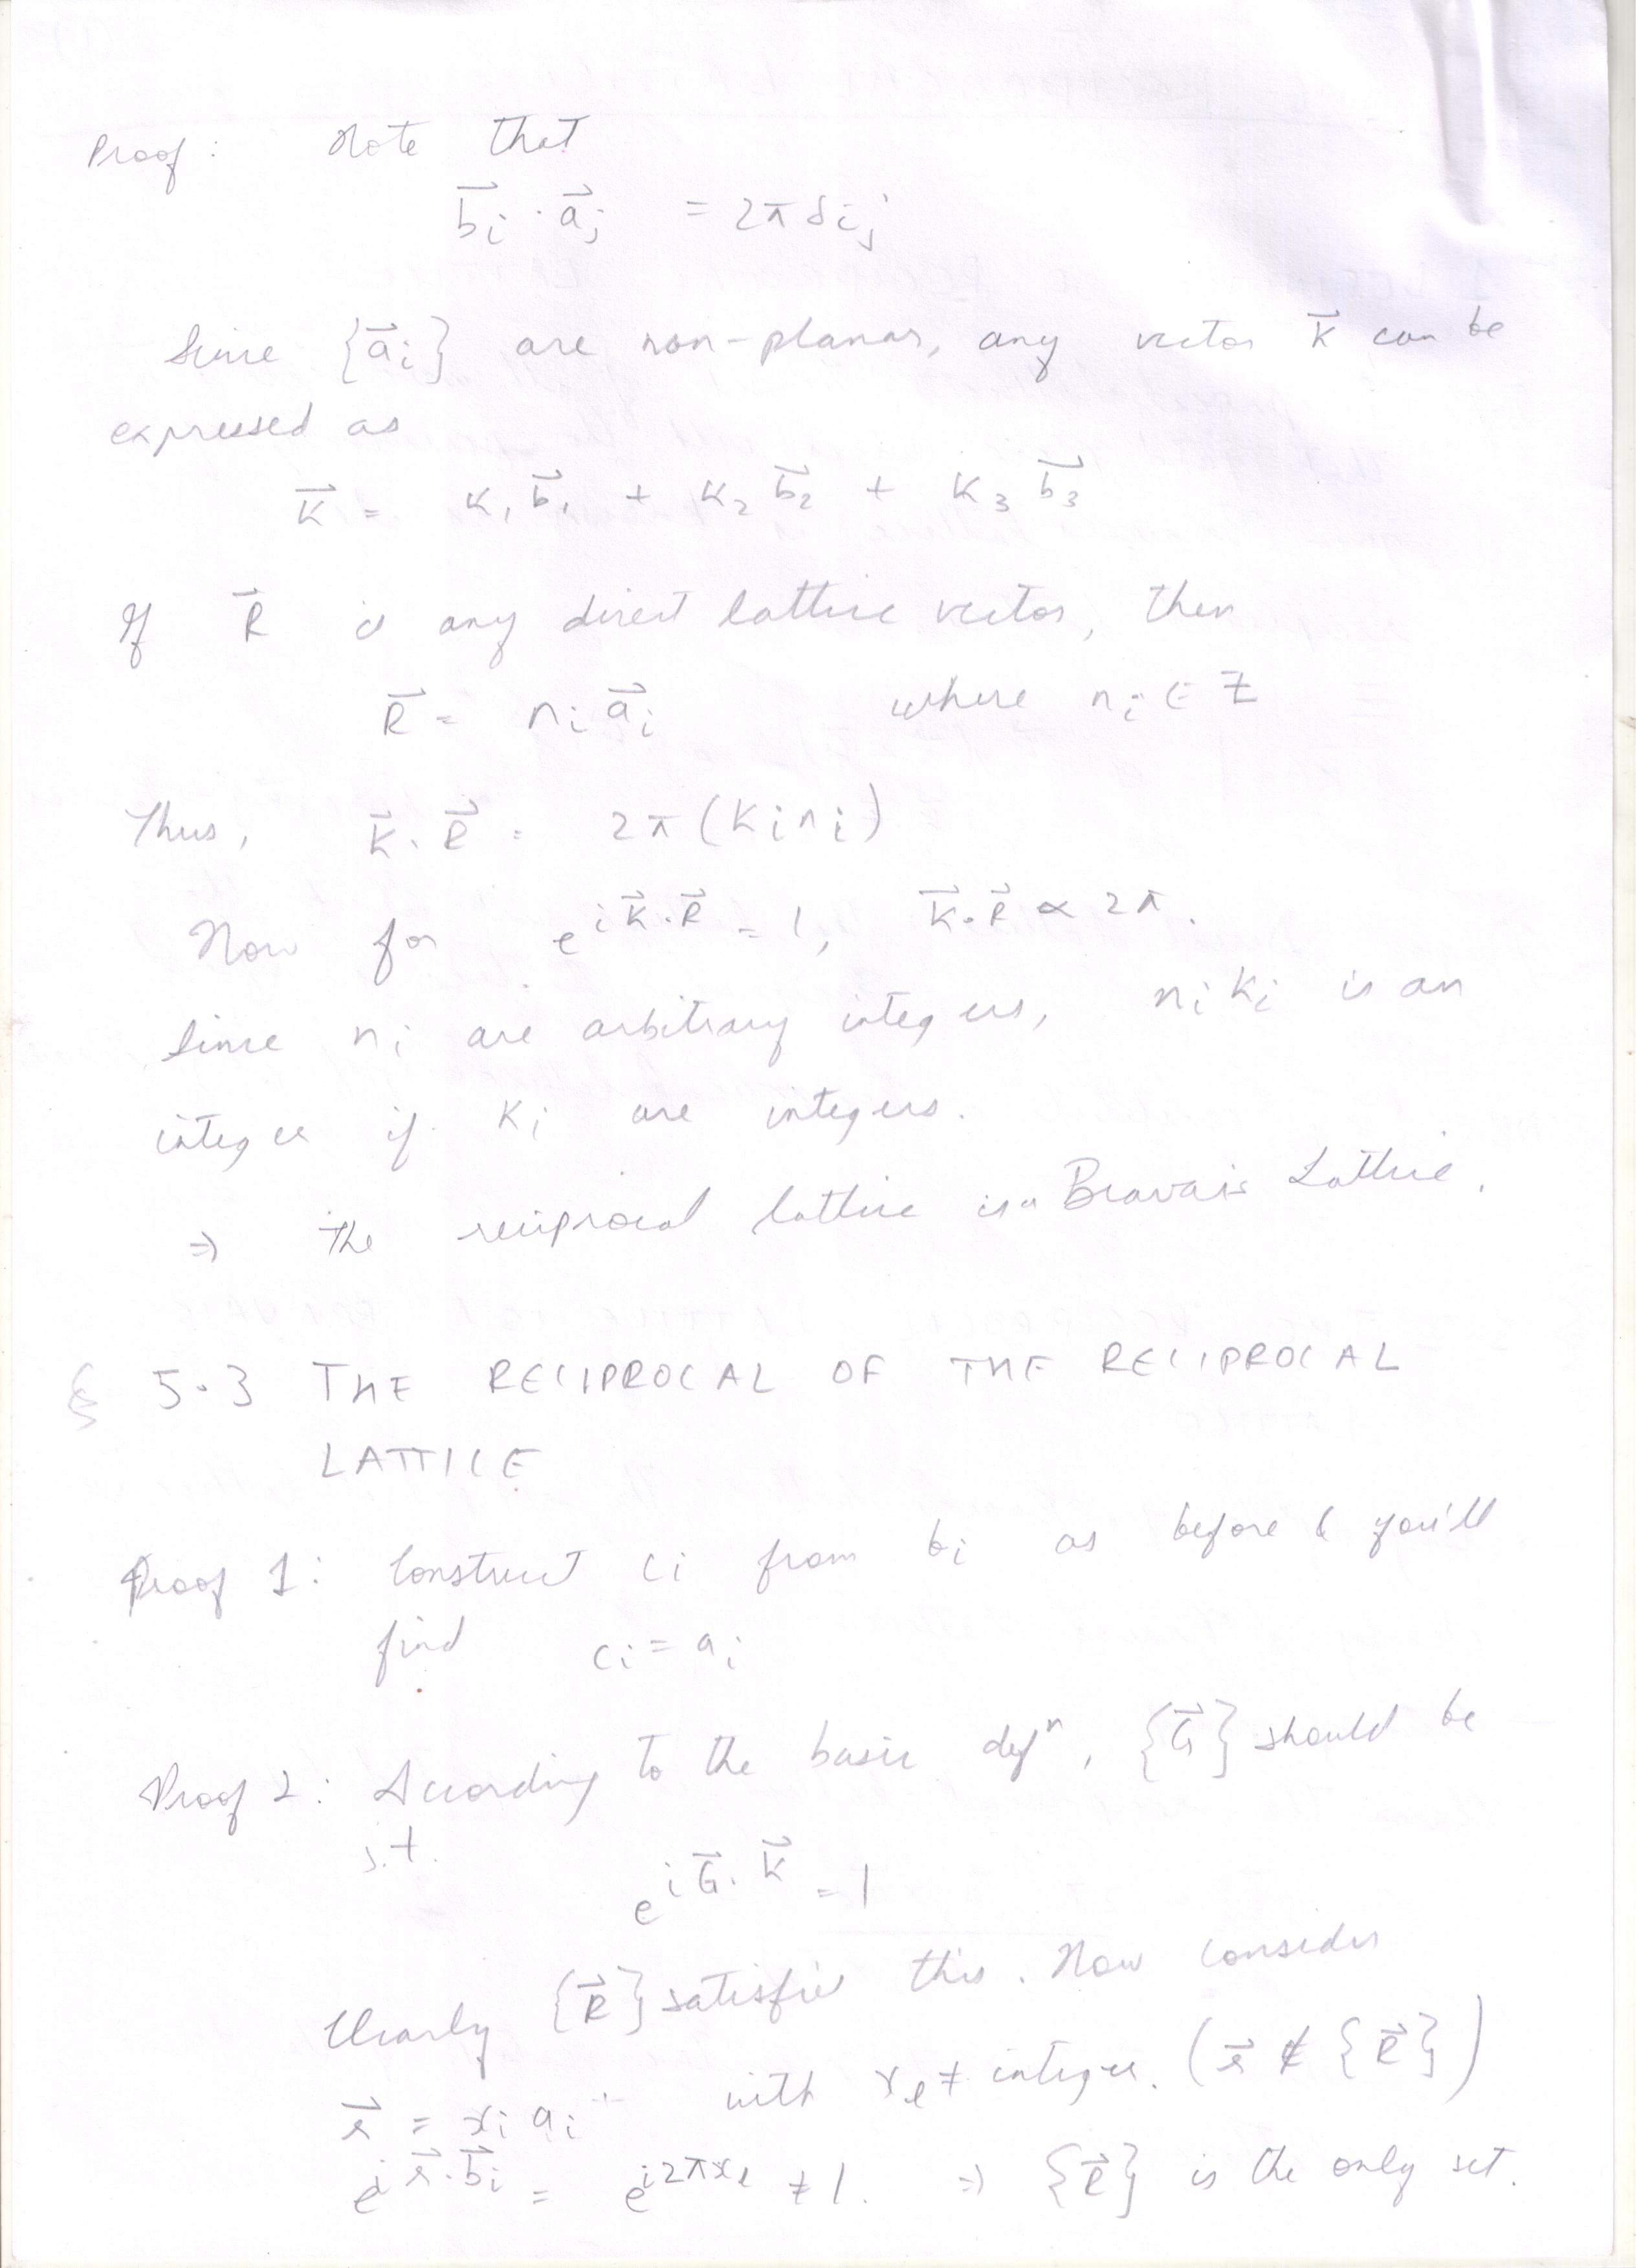 Proof : Note that
b⃗i · a⃗j = 2π δij
Since {a⃗i} are non-planar, any vector K⃗ can be
expressed as
K⃗ = K1 b⃗1 + K2 b⃗2 + K3 b⃗3
If R⃗ is any direct lattice vector, then
R⃗ = ni a⃗i where ni ∈ Z
Thus, K⃗ . R⃗ = 2π (Ki ni)
Now for e^{i K⃗ . R⃗} = 1, K⃗ . R⃗ ∝ 2π.
Since ni are arbitrary integers, ni Ki is an
integer if Ki are integers.
⇒ the reciprocal lattice is a Bravais Lattice.
§ 5.3 THE RECIPROCAL OF THE RECIPROCAL
LATTICE
Proof 1 : Construct ci from bi as before & you'll
find ci = ai
Proof 2 : According to the basic defⁿ, {G⃗} should be
s.t.
e^{i G⃗ . K⃗} = 1
Clearly {R⃗} satisfies this. Now consider
r⃗ = xi ai with xl ≠ integer. (r⃗ ∉ {R⃗})
e^{i r⃗ . b⃗i} = e^{i2πxl} ≠ 1. ⇒ {R⃗} is the only set.